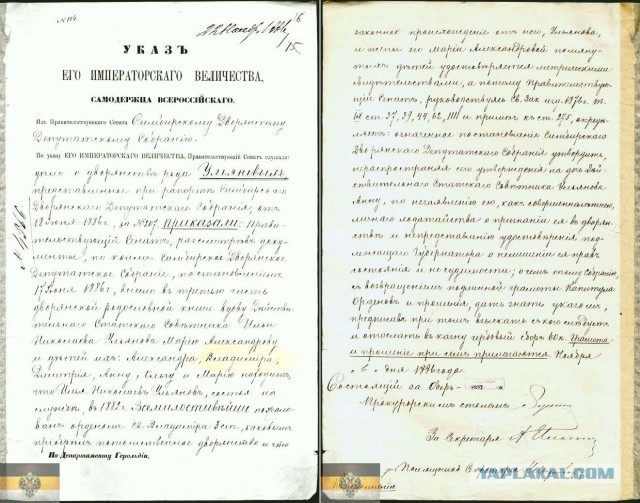 № 114.
УКАЗЪ
ЕГО ИМПЕРАТОРСКАГО ВЕЛИЧЕСТВА,
САМОДЕРЖЦА ВСЕРОССІЙСКАГО.
Изъ Правительствующаго Сената Симбирскому Дворянскому
Депутатскому Собранію.
По указу ЕГО ИМПЕРАТОРСКАГО ВЕЛИЧЕСТВА, Правительствующій Сенатъ слушали:
дѣло о дворянствѣ рода Ульяновыхъ,
представленное при рапортѣ Симбирскаго
Дворянскаго Депутатскаго Собранія, отъ
18 Іюня 1886 г., за № 107. Приказали: Прави-
тельствующій Сенатъ, разсмотрѣвъ доку-
менты, по коимъ Симбирское Дворянское
Депутатское Собраніе, постановленіемъ
17 Іюня 1886 г., внесло въ третью часть
дворянской родословной книги вдову Дѣйстви-
тельнаго Статскаго Совѣтника Ильи
Николаева Ульянова Марію Александрову
и дѣтей ихъ: Александра, Владиміра,
Дмитрія, Анну, Ольгу и Марію находитъ,
что Илья Николаевъ Ульяновъ, состоя на
службѣ, въ 1882 г. Всемилостивѣйше пожало-
ванъ орденомъ Св. Владиміра 3 ст., каковымъ
пріобрѣлъ потомственное дворянство и что
По Департаменту Герольдіи.
законное происхожденіе отъ него, Ульянова,
и жены его Маріи Александровой помяну-
тыхъ дѣтей удостовѣряется метрическими
свидѣтельствами, а потому Правительствую-
щій Сенатъ, руководствуясь Св. Зак. изд. 1876 г. т.
IX ст. 37, 39, 44, 62, и примѣч. къ ст. опредѣ-
ляетъ: означенное постановленіе Симбирскаго
Дворянскаго Депутатскаго Собранія утвердить,
не распространяя его утвержденія на дочь Дѣй-
ствительнаго Статскаго Совѣтника Ульянова
Анну, по неявленію ею, какъ совершеннолѣтнею,
личнаго ходатайства о признаніи ея въ дворян-
ствѣ и непредставленію удостовѣренія под-
лежащаго Губернатора о нелишеніи ея правъ
состоянія и не судимости; о чемъ тому Собранію,
съ возвращеніемъ подлинной грамоты Капитула
Орденовъ и прошенія, дать знать указомъ,
предписавъ при томъ взыскать съ кого слѣдуетъ
и отослать въ казну гербовый сборъ 60 к. Грамота
и прошеніе при семъ прилагаются. Ноября
дня 1886 года.
Состоящій за Оберъ-
Прокурорскимъ столомъ
За Секретаря
Помощникъ Секретаря
YAPLAKAL.COM